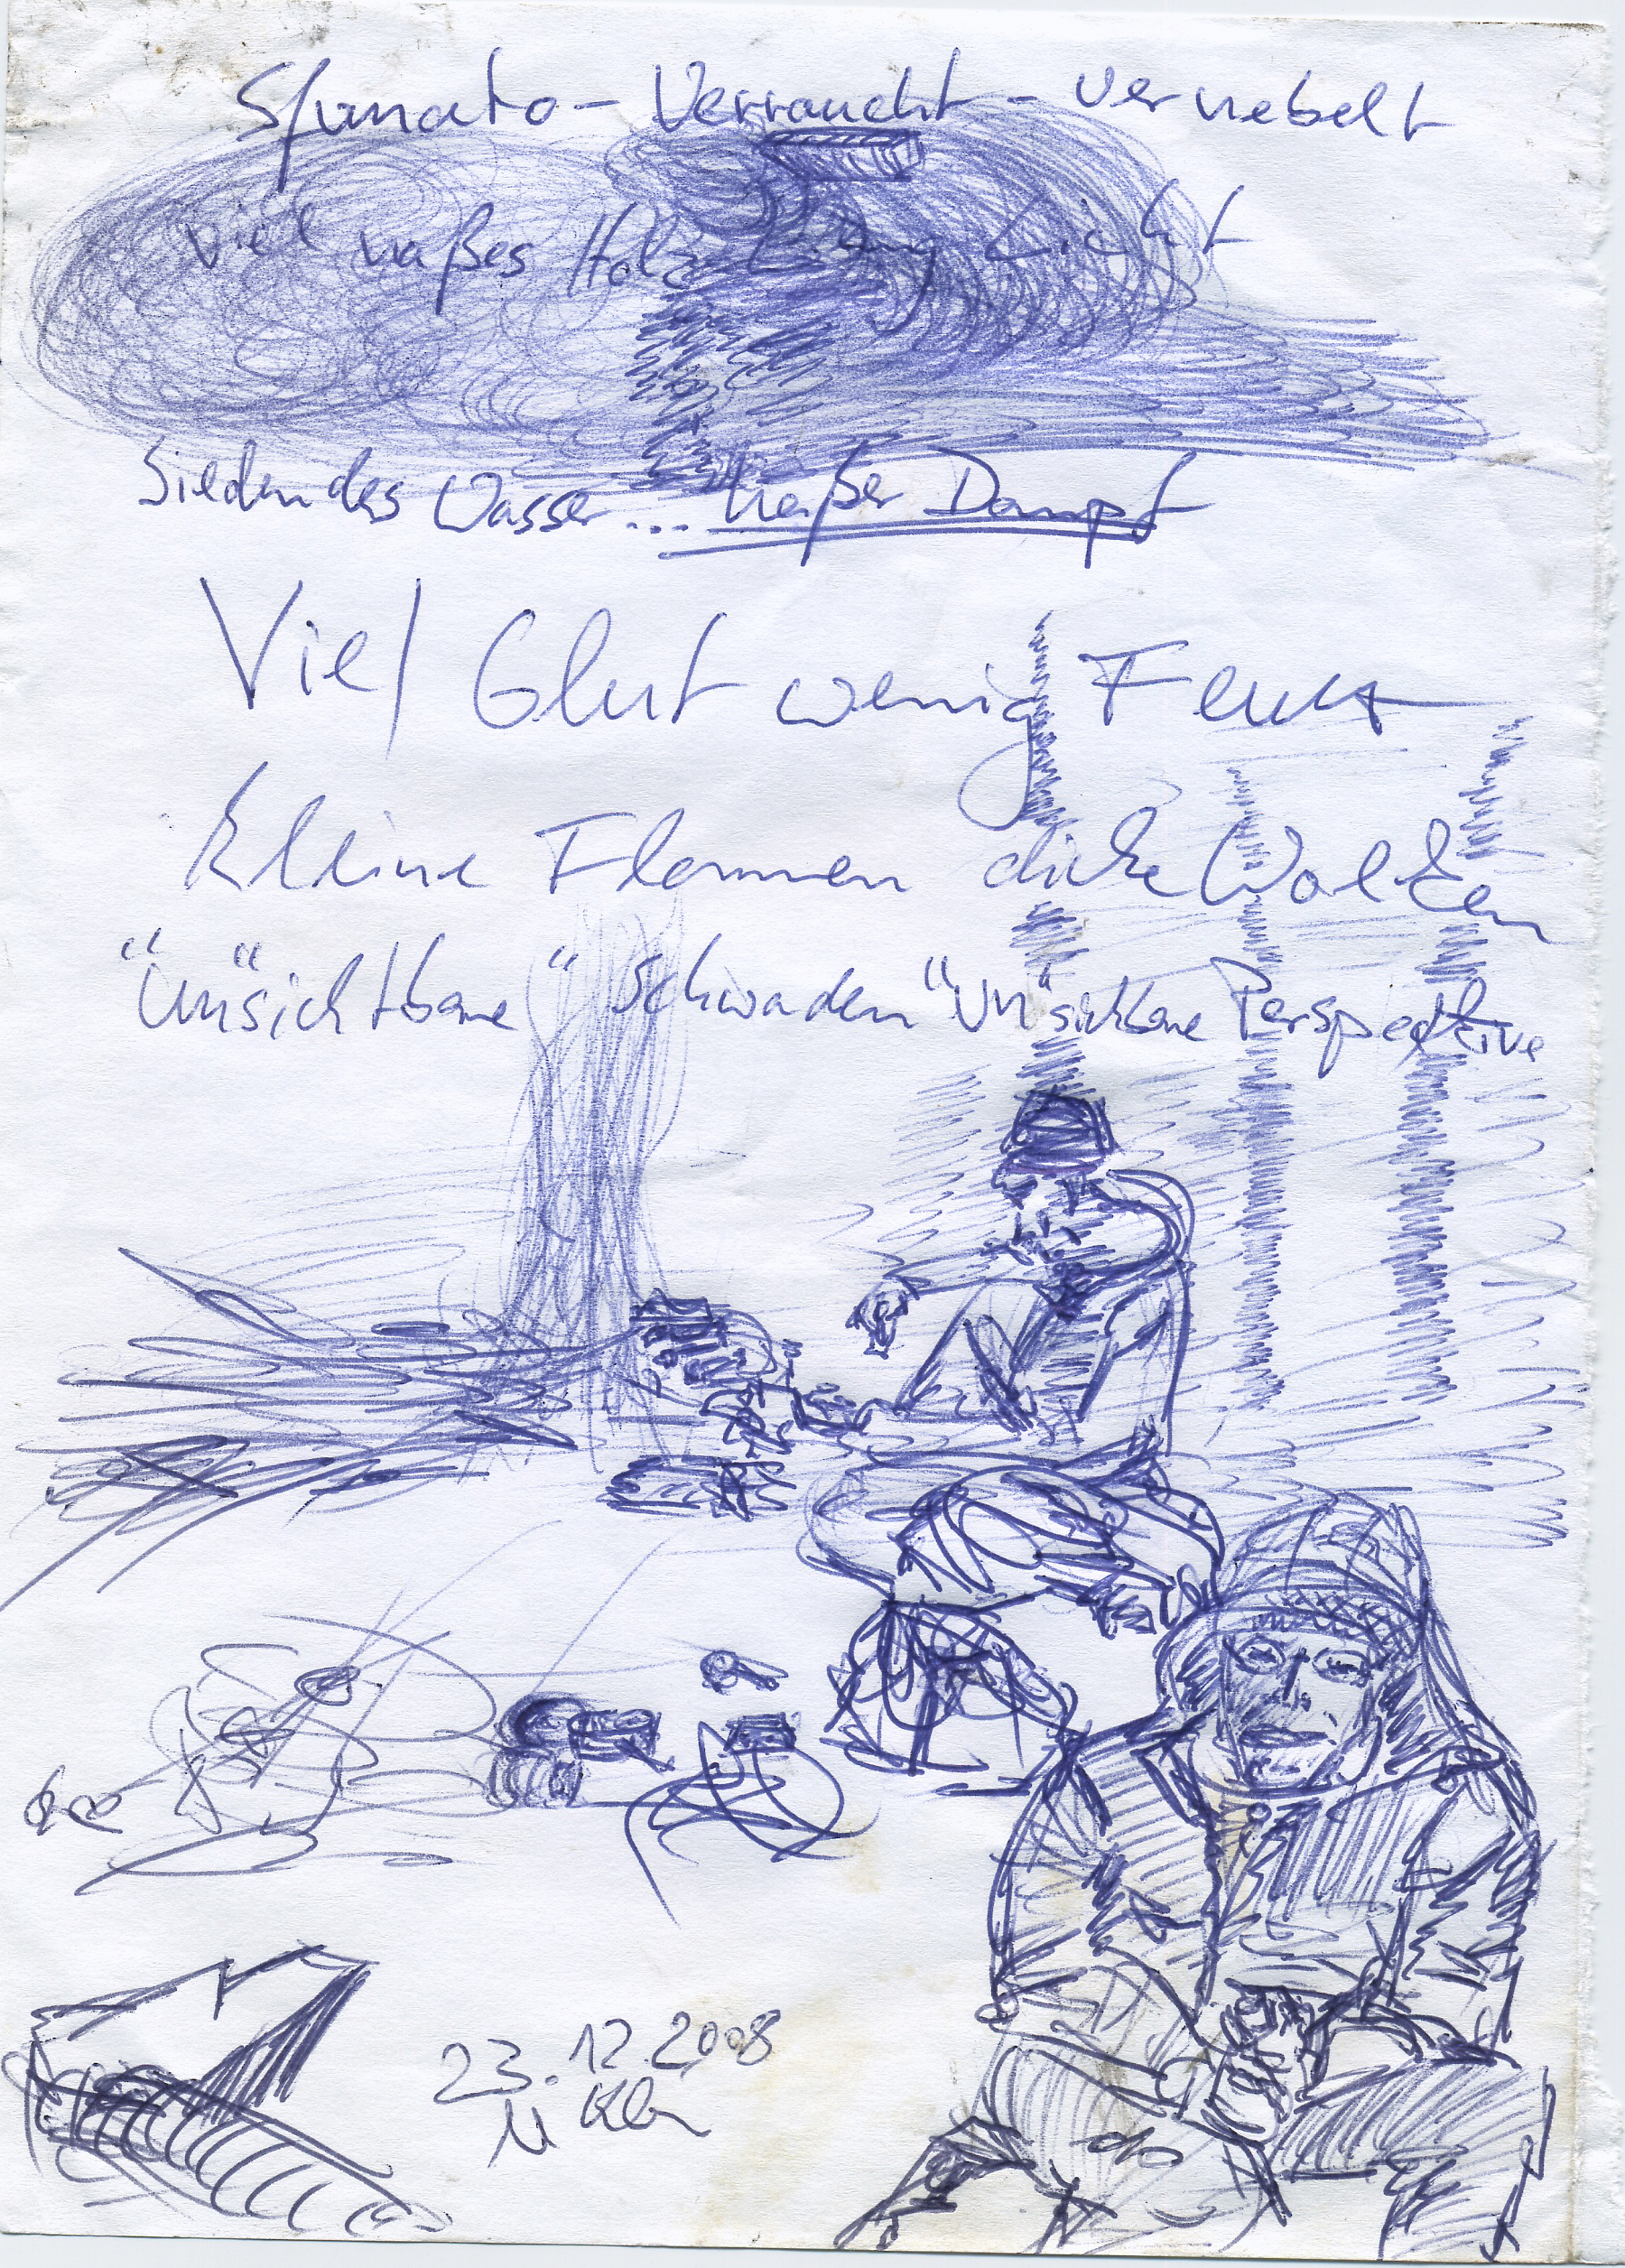 Sfumato - Verraucht - vernebelt
Viel naßes Holz wenig Licht
Siedendes Wasser... heißer Dampf
Viel Glut wenig Feuer
Kleine Flammen dicke Wolken
"Un"sichtbare" Schwaden "Un"sichtbare Perspektive
23.12.2008